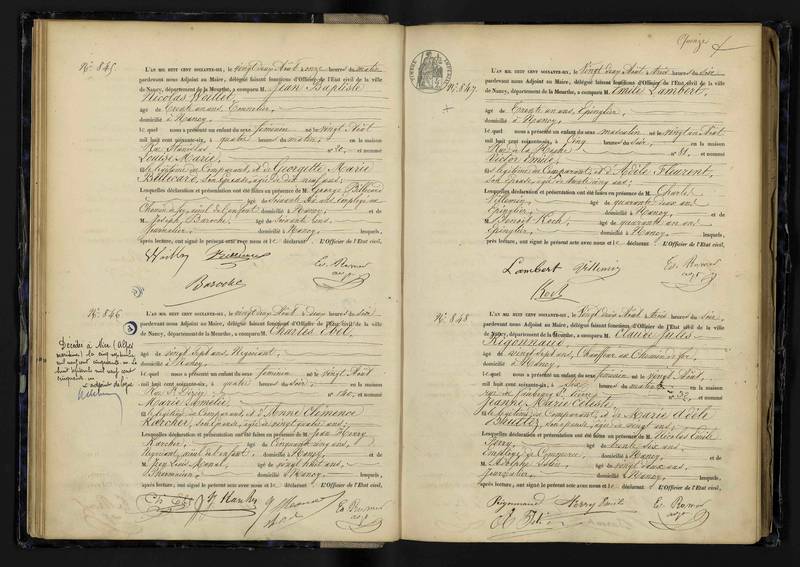 N° 845
L'AN MIL HUIT CENT SOIXANTE-SIX, le vingt deux Août à onze heures du matin
pardevant nous Adjoint au Maire, délégué faisant fonctions d'Officier de l'Etat civil de la ville
de Nancy, département de la Meurthe, a comparu M. Jean Baptiste
Nicolas Weiller,
âgé de Trente un ans,
domicilié à Nancy,
lequel nous a présenté un enfant du sexe féminin né le vingt Août
mil huit cent soixante-six, à quatre heures du matin, en la maison
Rue Stanislas n° 20, et nommé
Louise Marie,
fille légitime du Comparant, et de Georgette Marie
son épouse, âgée de dix neuf ans;
Lesquelles déclaration et présentation ont été faites en présence de M. George
âgé de soixante six ans, employé au
Chemin de fer, aïeul de l'enfant, domicilié à Nancy, et de
M. Joseph Baroche, âgé de soixante ans,
Journalier, domicilié à Nancy, lesquels,
après lecture, ont signé le présent acte avec nous et le déclarant. L'Officier de l'Etat civil,
Baroche
N° 846
L'AN MIL HUIT CENT SOIXANTE-SIX, le vingt deux Août à deux heures du soir
pardevant nous Adjoint au Maire, délégué faisant fonctions d'Officier de l'Etat civil de la ville
de Nancy, département de la Meurthe, a comparu M. Charles Ebel,
âgé de vingt sept ans, Négociant,
domicilié à Nancy,
lequel nous a présenté un enfant du sexe féminin né le vingt Août
mil huit cent soixante-six, à quatre heures du soir, en la maison
n° 140, et nommé
Marie Amélie,
fille légitime du Comparant et d'Anne Clémence
Karcher, son épouse, âgée de vingt quatre ans;
Lesquelles déclaration et présentation ont été faites en présence de M. Jean Henry
Karcher, âgé de Cinquante cinq ans,
Négociant, aïeul de l'enfant, domicilié à Nancy, et de
M. Jean Louis âgé de vingt huit ans,
Pharmacien, domicilié à Nancy, lesquels,
après lecture, ont signé le présent acte avec nous et le déclarant. L'Officier de l'Etat civil,
Décédée à Nice (Alpes
maritimes) le cinq septembre
mil neuf cent cinquante un. Le
huit septembre mil neuf cent
cinquante un
Quinze
N° 847
L'AN MIL HUIT CENT SOIXANTE-SIX, le vingt deux Août à trois heures du soir
pardevant nous Adjoint au Maire, délégué faisant fonctions d'Officier de l'Etat civil de la ville
de Nancy, département de la Meurthe, a comparu M. Emile Lambert,
âgé de Trente un ans, Epinglier,
domicilié à Nancy,
lequel nous a présenté un enfant du sexe masculin né le vingt un Août
mil huit cent soixante-six, à cinq heures du soir, en la maison
Rue de la Hache n° 81, et nommé
Victor Emile,
fils légitime du Comparant, et d'Adèle Fleurent,
son épouse, âgée de trente cinq ans;
Lesquelles déclaration et présentation ont été faites en présence de M. Charles
Villemin, âgé de quarante deux ans,
Epinglier, domicilié à Nancy, et de
M. Benoit Koch, âgé de quarante un ans,
Epinglier, domicilié à Nancy, lesquels,
après lecture, ont signé le présent acte avec nous et le déclarant. L'Officier de l'Etat civil,
Lambert Villemin
Koch
N° 848
L'AN MIL HUIT CENT SOIXANTE-SIX, le vingt deux Août à trois heures du soir,
pardevant nous Adjoint au Maire, délégué faisant fonctions d'Officier de l'Etat civil de la ville
de Nancy, département de la Meurthe, a comparu M. Claude Jules
Rigonnaud,
âgé de vingt sept ans, Chauffeur au Chemin de fer,
domicilié à Nancy,
lequel nous a présenté un enfant du sexe féminin né le vingt Août,
mil huit cent soixante-six, à six heures du matin, en la maison
rue du faubourg St. Pierre n° 52, et nommé
Jeanne Marie Céleste,
fille légitime du Comparant, et de Marie Adèle
son épouse, âgée de vingt ans;
Lesquelles déclaration et présentation ont été faites en présence de M. Nicolas Emile
âgé de trente six ans,
Employé de Commerce, domicilié à Nancy, et de
M. Adolphe âgé de vingt deux ans,
Journalier, domicilié à Nancy, lesquels,
après lecture, ont signé le présent acte avec nous et le déclarant. L'Officier de l'Etat civil,
Rigonnaud